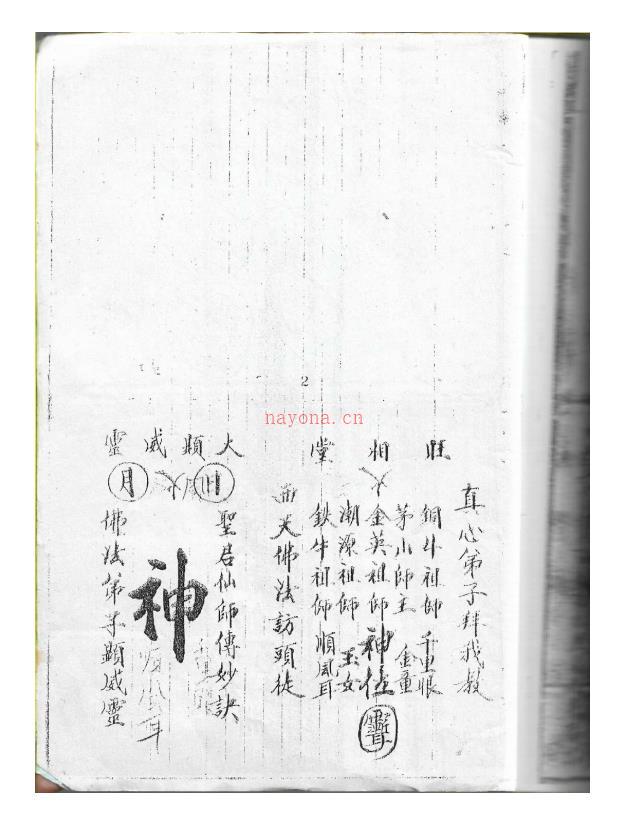 2
nayona.cn
真心弟子拜我教
旺相堂
銅牛祖師 千里眼
茅山師主 金童
金英祖師 神位
潮源祖師 玉女
鉄牛祖師 順風耳
天佛法訪頭徒
大顯威靈
日
火
月
聖君仙師傳妙訣
神
千里眼
順風耳
佛法弟子顯威靈